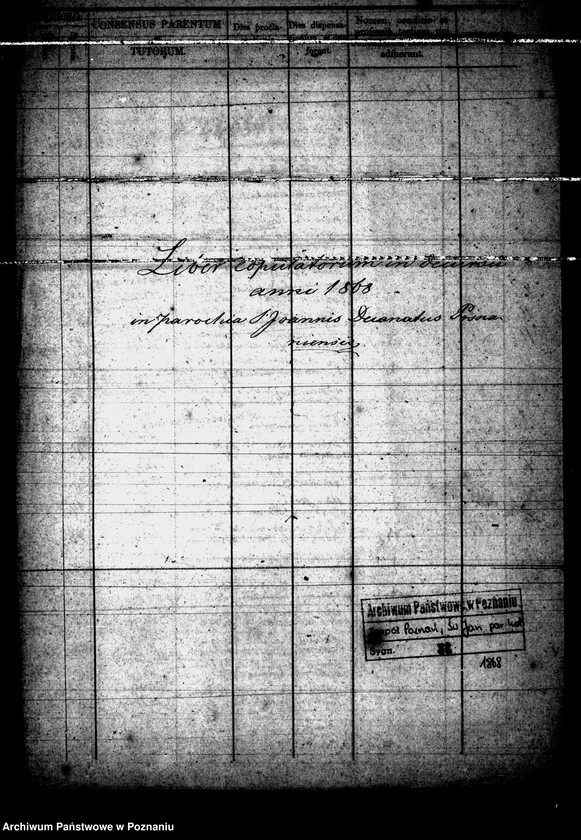 CONSENSUS PARENTUM
TUTORUM.
Dies procla-
Dies dispensa-
forent.
Nomen, conditio et
adfuerant.
Liber copulatorum in decursu
anni 1868
in parochia S Joannis Decanatus Posna
niensis
Archiwum Państwowe w Poznaniu
Zespół Poznań, Św Jan par. kat
Sygn. 22
1868
Archiwum Państwowe w Poznaniu